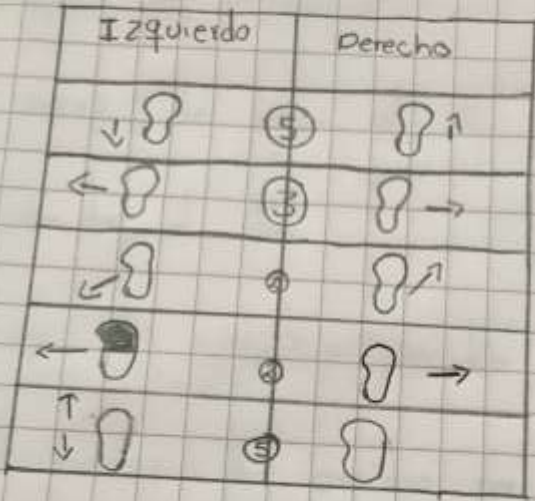 Izquierdo Derecho
5
3
5